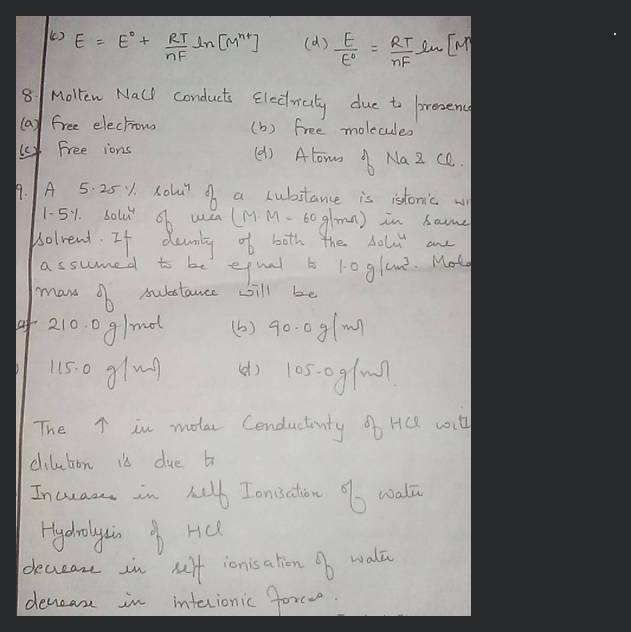 (c) E = E° + RT/nF ln [Mⁿ⁺] (d) E/E° = RT/nF ln [M
8. Molten NaCl conducts Electricity due to presence
(a) Free electrons (b) free molecules
(c) Free ions (d) Atoms of Na & Cl.
9. A 5.25 % soluⁿ of a substance is isotonic wi
1.5% soluⁿ of urea (M.M = 60 g/mol) in same
solvent. If density of both the soluⁿ are
assumed to be equal to 1.0 g/cm³. Mola
mass of substance will be
210.0 g/mol (b) 90.0 g/mol
115.0 g/mol (d) 105.0 g/mol.
The ↑ in molar Conductivity of HCl with
dilution is due to
Increases in self Ionisation of water
Hydrolysis of HCl
decrease in self ionisation of water
decrease in interionic forces.